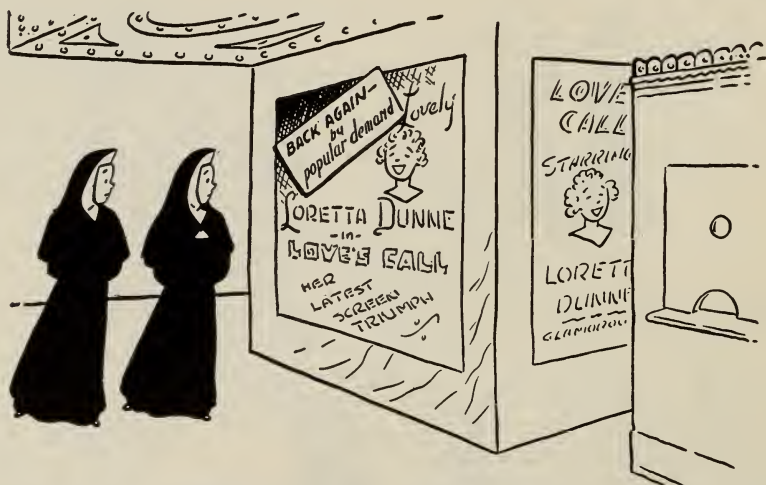 BACK AGAIN-
by
popular demand
Lovely
LORETTA DUNNE
-in-
LOVE'S CALL
HER
LATEST
SCREEN
TRIUMPH
LOVE
CALL
STARRING
LORETT
DUNNE
GLAMOROU